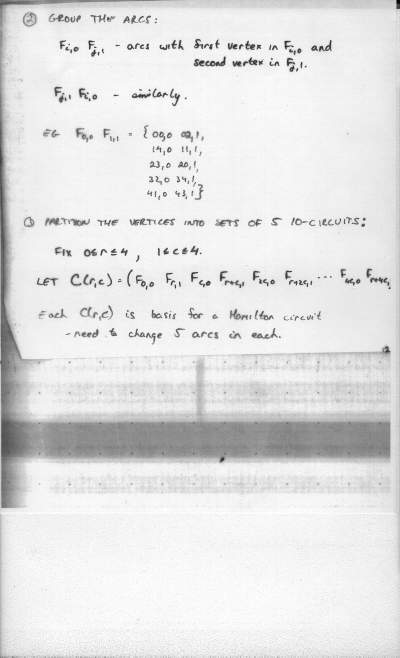 ② GROUP THE ARCS:
Fi,0 Fj,1 - arcs with first vertex in Fi,0 and
second vertex in Fj,1.
Fj,1 Fi,0 - similarly.
EG F0,0 F1,1 = { 00,0 02,1,
14,0 11,1,
23,0 20,1,
32,0 34,1,
41,0 43,1 }
PARTITION THE VERTICES INTO SETS OF 5 10-CIRCUITS:
FIX 0≤r≤4, 1≤c≤4.
LET C(r,c) = (F0,0 Fr,1 Fc,0 Fr+c,1 F2c,0 Fr+2c,1 ... F4c,0 Fr+4c,
Each C(r,c) is basis for a Hamilton circuit
- need to change 5 arcs in each.
12